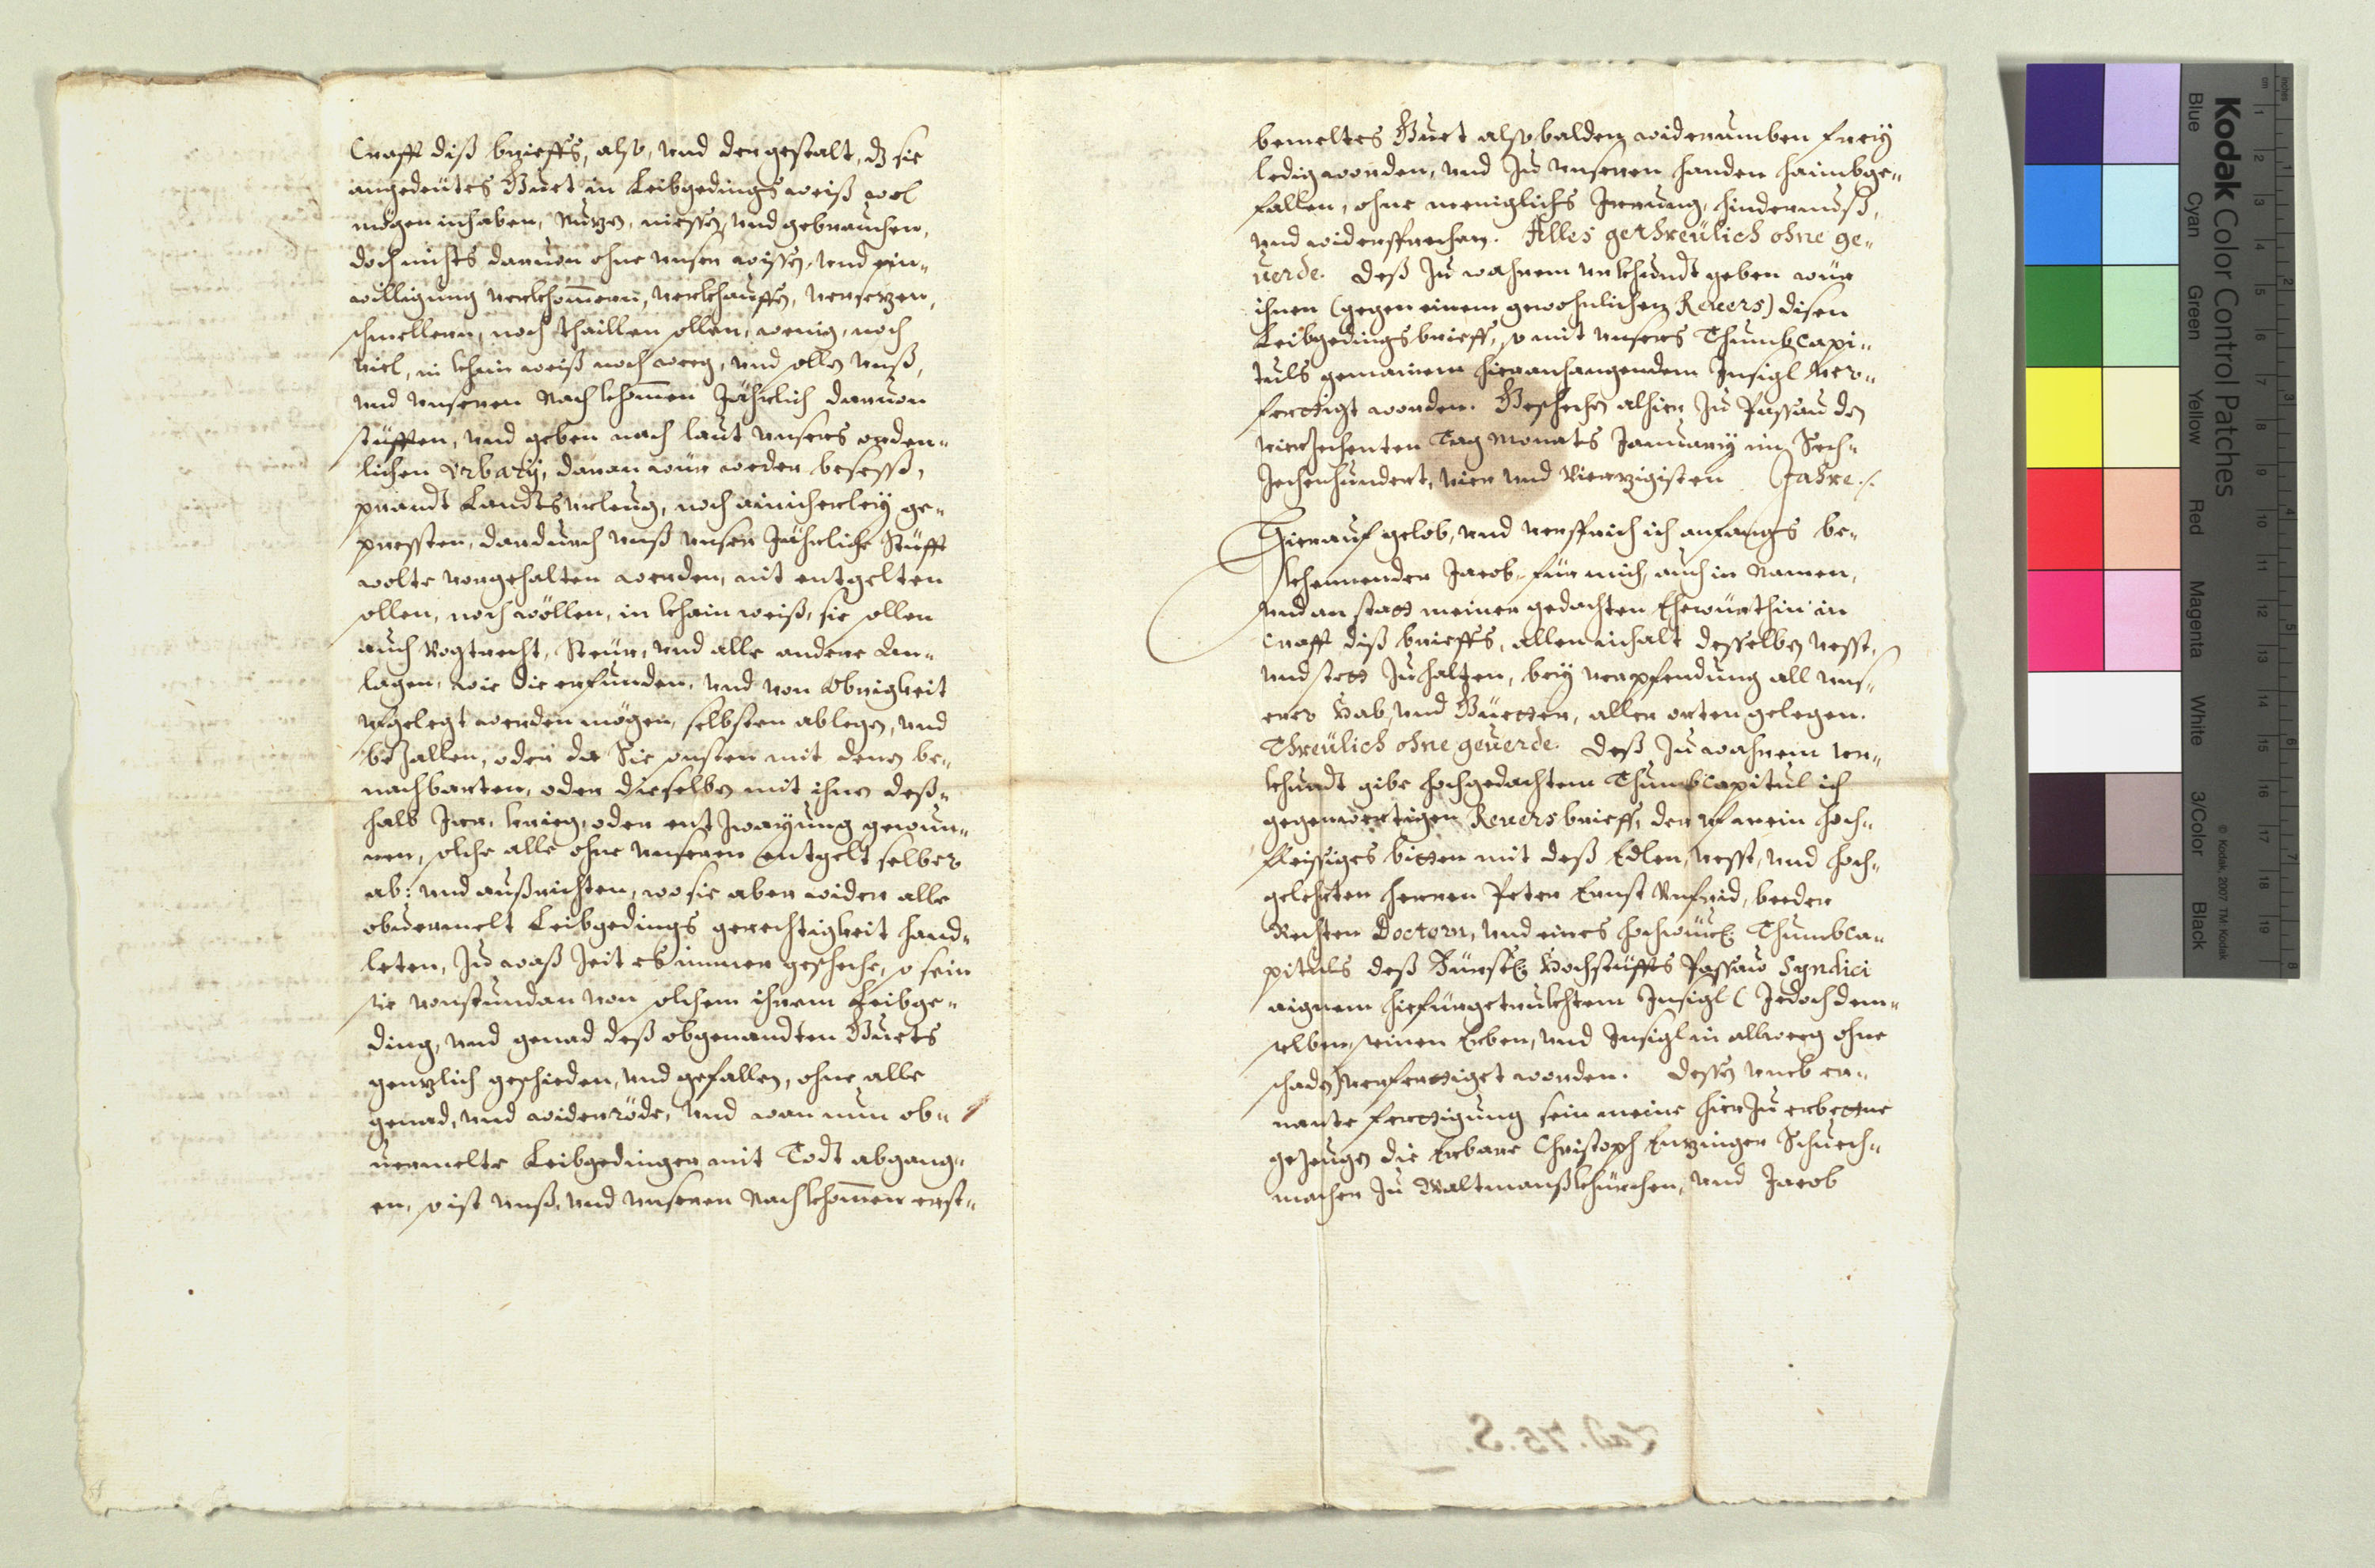 Crafft diß brieffs, also, vnd dergestalt, dz sie
angedeütes Guet in Leibgedings weiß wol
mögen inhaben, Nuzen, niessen, vnd gebrauchen,
doch nichts daruon ohne vnser wissen, vnd ein-
willigung verkhom̄ern, verkhauffen, versezen,
schmellern, noch thaillen sollen, wenig, noch
viel, in khain weiß noch weeg, vnd sollen vnß,
vnd vnseren Nachkhom̄en Jährlich daruon
stüfften, vnd geben nach laut vnsers orden-
lichen Vrbarÿ, daran wür weder
prandt Landtsurleug, noch ainicherleÿ ge-
pressten, dardurch vnß vnser Jährliche Stüfft
wolte vorgehalten werden, nit entgelten
sollen, noch wöllen, in khain weiß, sie sollen
auch Vogtrecht, Steur, vnd alle andere An-
lagen, wie die erfunden, vnd von Obrigkeit
vfgelegt werden mögen, selbsten ablegen, vnd
bezallen, oder da Sie sonsten mit denen be-
nachbarten, oder dieselben mit ihnen deß-
halb Irr, krieg, oder entzwayung gewun-
nen, solche alle ohne vnseren entgelt selber
ab: vnd außrichten, wo sie aber wider alle
obuermelt Leibgedings gerechtigkeit hand-
leten, Zu waß Zeit es immer geschehe, so sein
sie vonstundan von solchem ihrem Leibge-
ding, vnd genad deß obgenandten Guets
genzlich geschieden, vnd gefallen, ohne alle
genad, vnd widerröde, vnd wan nun ob-
uermelte Leibgedinger mit Todt abgang-
en, so ist vnß, vnd vnseren Nachkhom̄en erst-
bemeltes Guet alsobalden widerumben freÿ
ledig worden, und Zu vnseren handen haimbge-
fallen, ohne meniglichs Irrung, hindernuß,
vnd widersprechen. Alles gethreülich ohne ge-
uerde. Deß Zu wahrem vrkhundt geben wür
ihnen (gegen einem gewohnlichen Reuers) disen
Leibgedingsbrieff, so mit vnsers Thumbcapi-
tuls gemainem hieranhangendem Insigl ver-
fertigt worden. Geschehen alhier Zu Passau den
vierzehenten Tag Monats Januarÿ im Sech-
zehenhundert, vier und Vierzigisten Jahre./.
Hierauf gelob, vnd versprich ich anfangs be-
khennender Jacob für mich, auch in Namen,
vnd an statt meiner gedachten Ehewürthin in
Crafft diß brieffs, allen inhalt desselben vesst,
vnd stett Zuhalten, beÿ verpfendung all vns-
erer Hab, vnd Güetter, aller orten gelegen.
Threülich ohne geuerde. Deß Zu wahrem vr-
khundt gibe hochgedachtem Thumbcapitul ich
gegenwertigen Reuersbrieff, der vf mein hoch-
fleissiges bitten mit deß Edlen, vesst, vnd hoch-
gelehrten herren Peter Ernst Vnfrid, beeder
Rechten Doctorn, vnd eines hochwürd: Thumbca-
pituls deß Fürstl: Hochstüffts Passaw Syndici
aignem hiefürgetrukhtem Insigl (Jedoch dem-
selben, seinen Erben, vnd Insigl in allweeg ohne
schaden) verferttiget worden. Dessen vmb er-
nante ferttigung sein meine hierzu erbettne
gezeugen die Erbare Christoph Enzinger Schuech-
macher Zu Waltmanßkhürchen, vnd Jacob
Lad. 75. S.